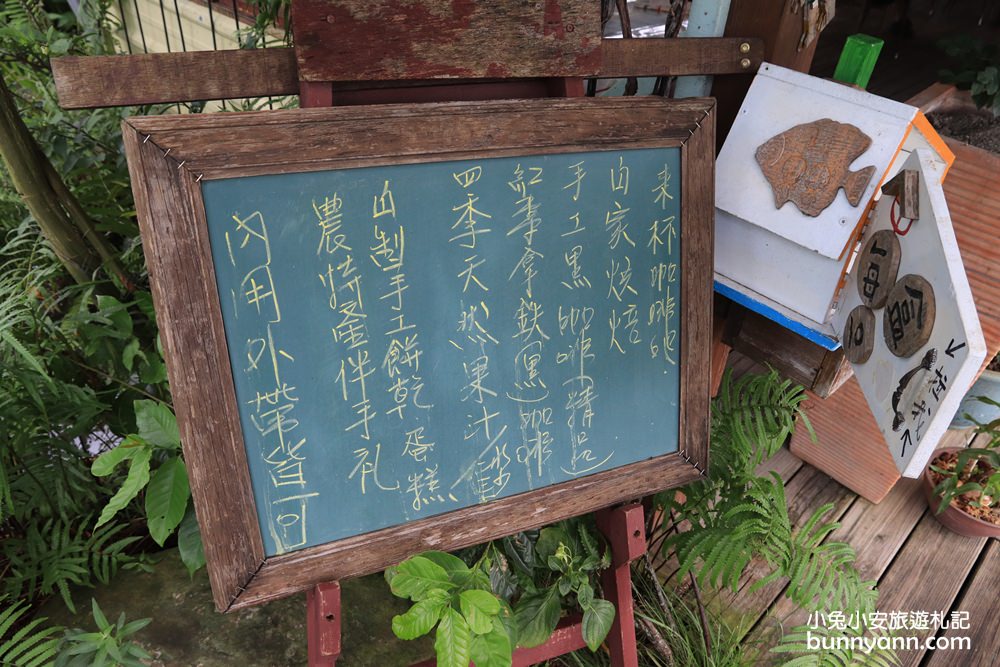 來杯咖啡吧.
自家烘焙
手工黑咖啡/精品
紅素拿鉄/黑咖啡
四季天然果汁/冰沙
自製手工餅乾/蛋糕
農特産伴手礼
內用外帶皆可
小兔小安旅遊札記
www.bunnyann.com